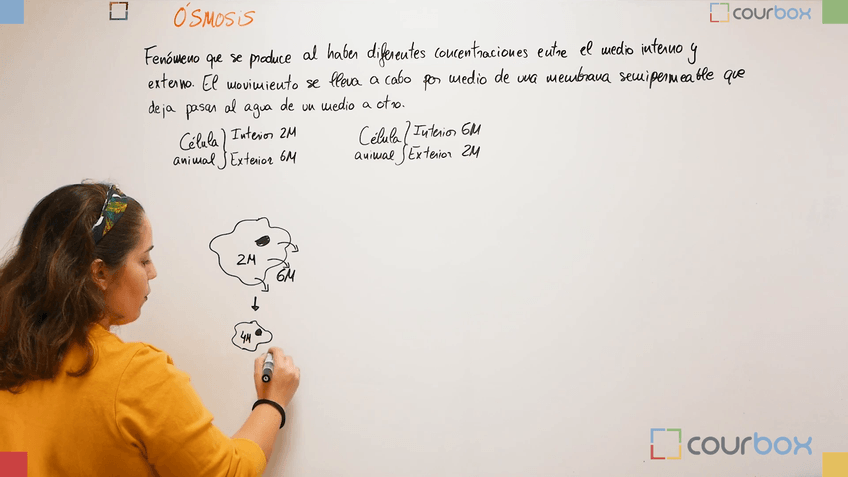 ÓSMOSIS
courbox
Fenómeno que se produce al haber diferentes concentraciones entre el medio interno y
externo. El movimiento se lleva a cabo por medio de una membrana semipermeable que
deja pasar al agua de un medio a otro.
Célula animal } Interior 2M
Exterior 6M
Célula animal } Interior 6M
Exterior 2M
2M
6M
4M
courbox